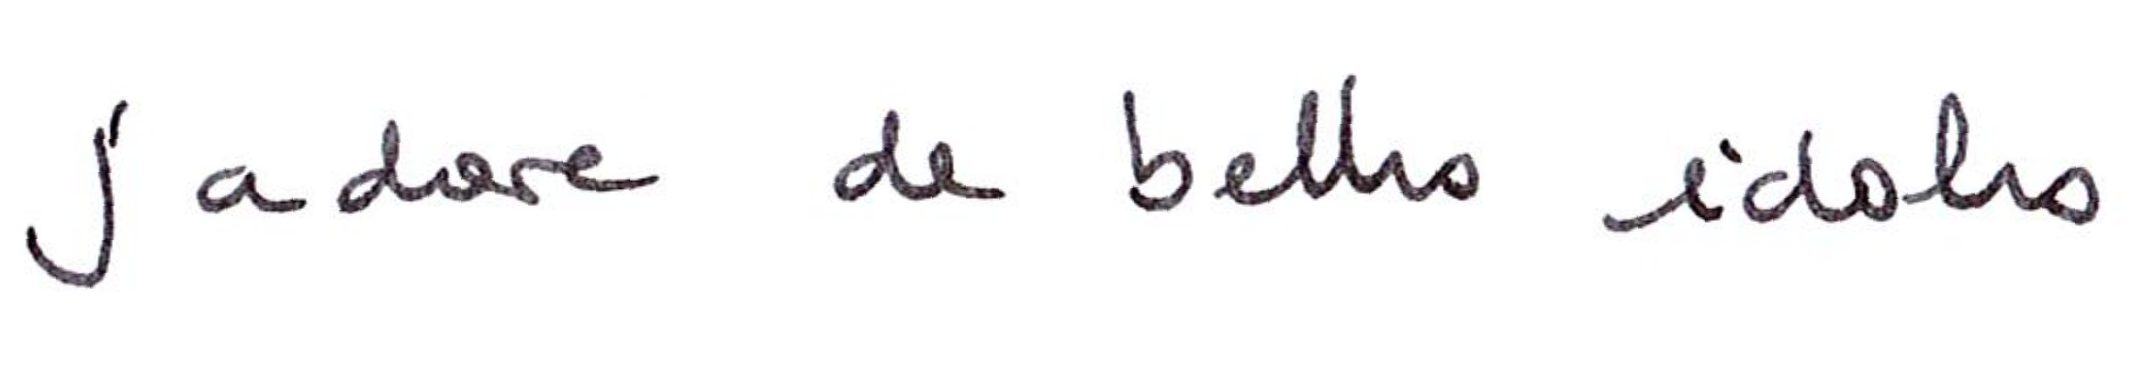 j'adore de belles idoles